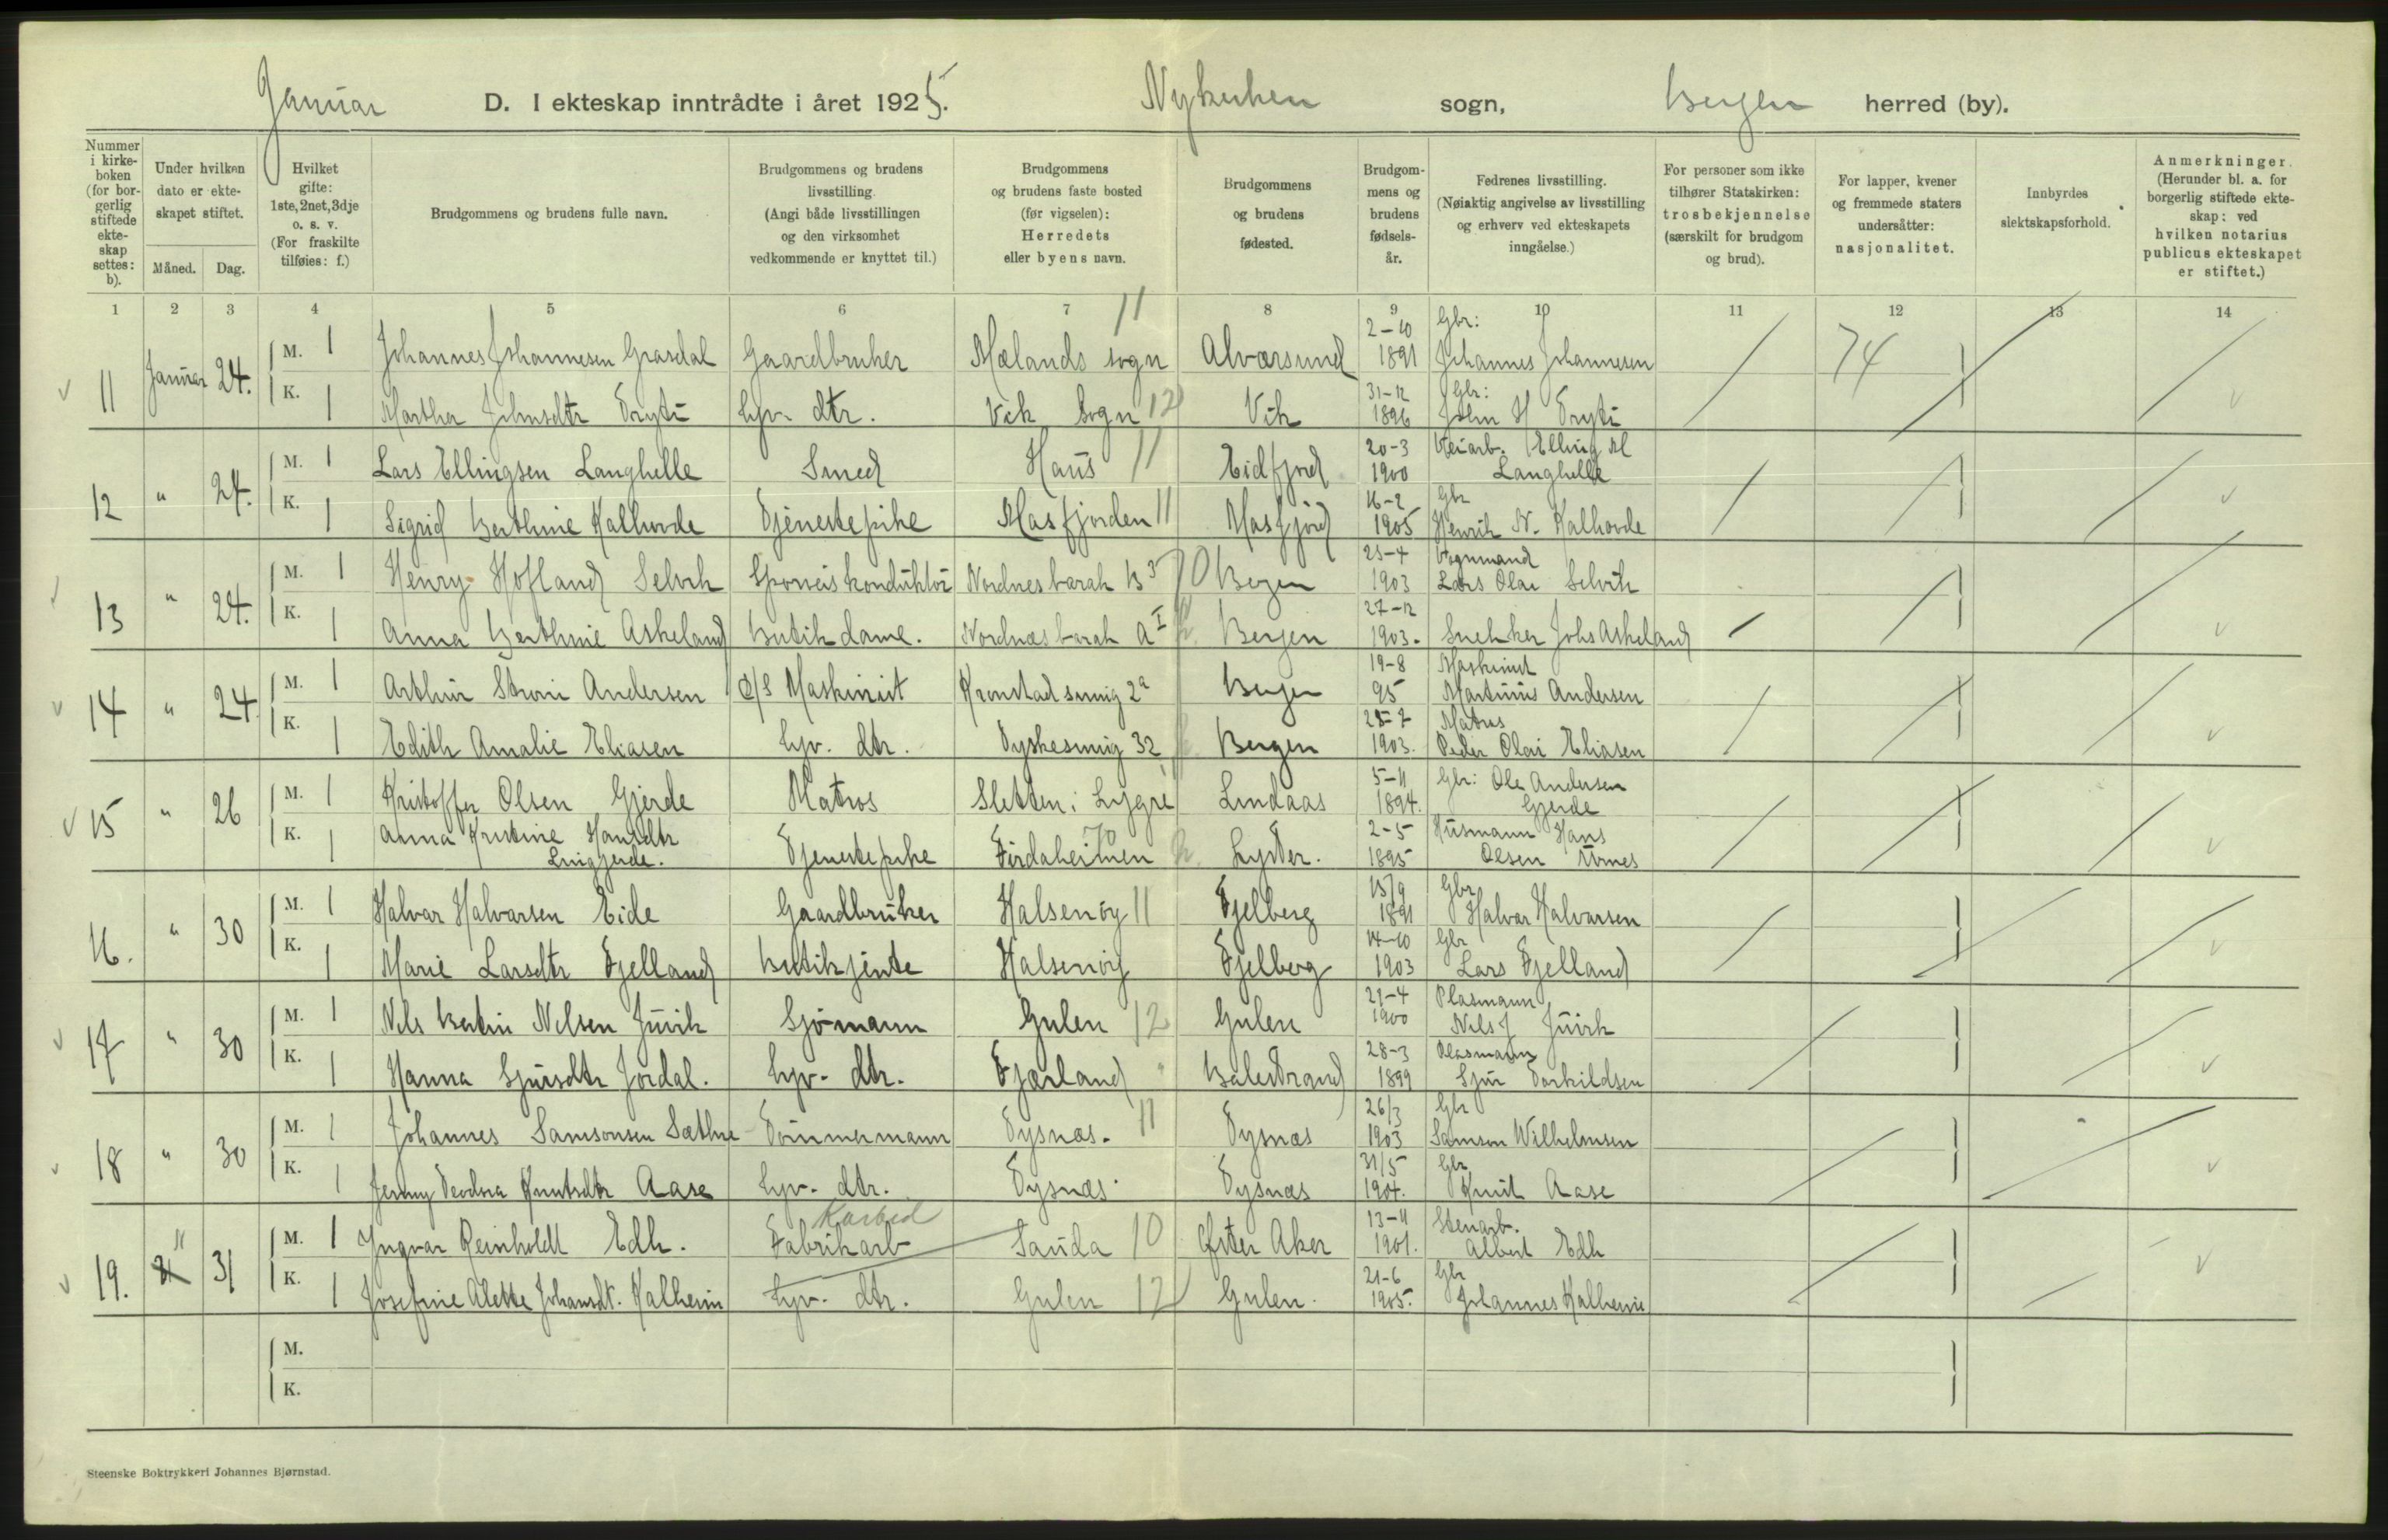 Januar D. I ekteskap inntrådte i året 1925. Nykirken sogn, Bergen herred (by).
Nummer i kirkeboken (for borgerlig stiftede ekteskap settes: b).
Under hvilken dato er ekteskapet stiftet.
Måned. Dag.
Hvilket gifte: 1ste, 2net, 3dje o. s. v. (For fraskilte tilføies: f.)
Brudgommens og brudens fulle navn.
Brudgommens og brudens livsstilling. (Angi både livsstillingen og den virksomhet vedkommende er knyttet til.)
Brudgommens og brudens faste bosted (før vigselen): Herredets eller byens navn.
Brudgommens og brudens fødested.
Brudgommens og brudens fødselsår.
Fedrenes livsstilling. (Nøiaktig angivelse av livsstilling og erhverv ved ekteskapets inngåelse.)
For personer som ikke tilhører Statskirken: trosbekjennelse (særskilt for brudgom og brud).
For lapper, kvener og fremmede staters undersåtter: nasjonalitet.
Innbyrdes slektskapsforhold.
Anmerkninger. (Herunder bl. a. for borgerlig stiftede ekteskap: ved hvilken notarius publicus ekteskapet er stiftet.)
1 2 3 4 5 6 7 8 9 10 11 12 13 14
11 Januar 24. M. 1 Johannes Johannesen Grasdal Gaardbruker Mælands sogn 11 Alværsund 2-10 1891 Gbr: Johannes Johannesen 74
K. 1 Martha Johnsdtr Tryti hjv. dtr. Vik Sogn 12 Vik 31-12 1896 Gbr: John H Tryti
12 " 24. M. 1 Lars Ellingsen Langhelle Smed Haus 11 Eidfjord 20-3 1900 Veiarb. Elling M Langhelle
K. 1 Sigrid Berthine Kalhovde Tjenestepike Masfjorden 11 Masfjord 16-2 1905 Gbr Henrik N. Kalhovde
13 " 24. M. 1 Henry Hofland Selvik Sporveiskonduktör Nordnesbarak B 3 70 Bergen 25-4 1903 Vognmand Lars Olai Selvik
K. 1 Anna Berthine Askeland Butikdame. Nordnæsbarak A I Bergen 27-12 1903. Snekker Johs Askeland
14 " 24. M. 1 Arthur Andersen d/s Maskinist Kronstadsmug 2a Bergen 19-8 95 Maskinist Martinius Andersen
K. 1 Edith Amalie Eliasen hjv. dtr. Tyskesmug 32 Bergen 25-7 1903. Matros Peder Olai Eliasen
15 " 26 M. 1 Kristoffer Olsen Gjerde Matros Sletten i Lygre Lindaas 5-11 1894. Gbr: Ole Andersen Gjerde
K. 1 Anna Kristine Hansdtr Tjenestepike Firdaheimen 70 Lyster. 2-5 1895 Husmann Hans Olsen Urnes
16. " 30 M. 1 Halvar Halvarsen Eide Gaardbruker Halsenöy 11 Fjelberg 15/9 1891 Gbr Halvar Halvarsen
K. 1 Marie Larsdtr Fjelland Butikjente Halsenöy Fjelberg 14-10 1903 Gbr Lars Fjelland
17 " 30 M. 1 Nils Bertin Nilsen Juvik Sjømann Gulen 12 Gulen 21-4 1900 Plasmann Nils J Juvik
K. 1 Hanna Sjursdtr Jordal. hjv. dtr. Fjærland " Balestrand 28-3 1899 Plasmann Sjur Torkildsen
18 " 30 M. 1 Johannes Samsonsen Sæthre Tömmermann Tysnæs. 11 Tysnæs 26/3 1903 Gbr Samson Wilhelmsen
K. 1 Jenny Teodora Knutsdtr Aase hjv. dtr. Tysnæs. Tysnæs 31/5 1904. Gbr Knut Aase
19. " 31 M. 1 Yngvar Reinholdt Edh. Karbid Fabrikarb Sauda 10 Öster Aker 13-11 1901. Stenarb. Albert Edh
K. 1 Josefine Alette Johansdt. Kalheim hjv. dtr. Gulen 12 Gulen. 21-6 1905. Gbr Johannes Kalheim
M.
K.
Steenske Boktrykkeri Johannes Bjørnstad.